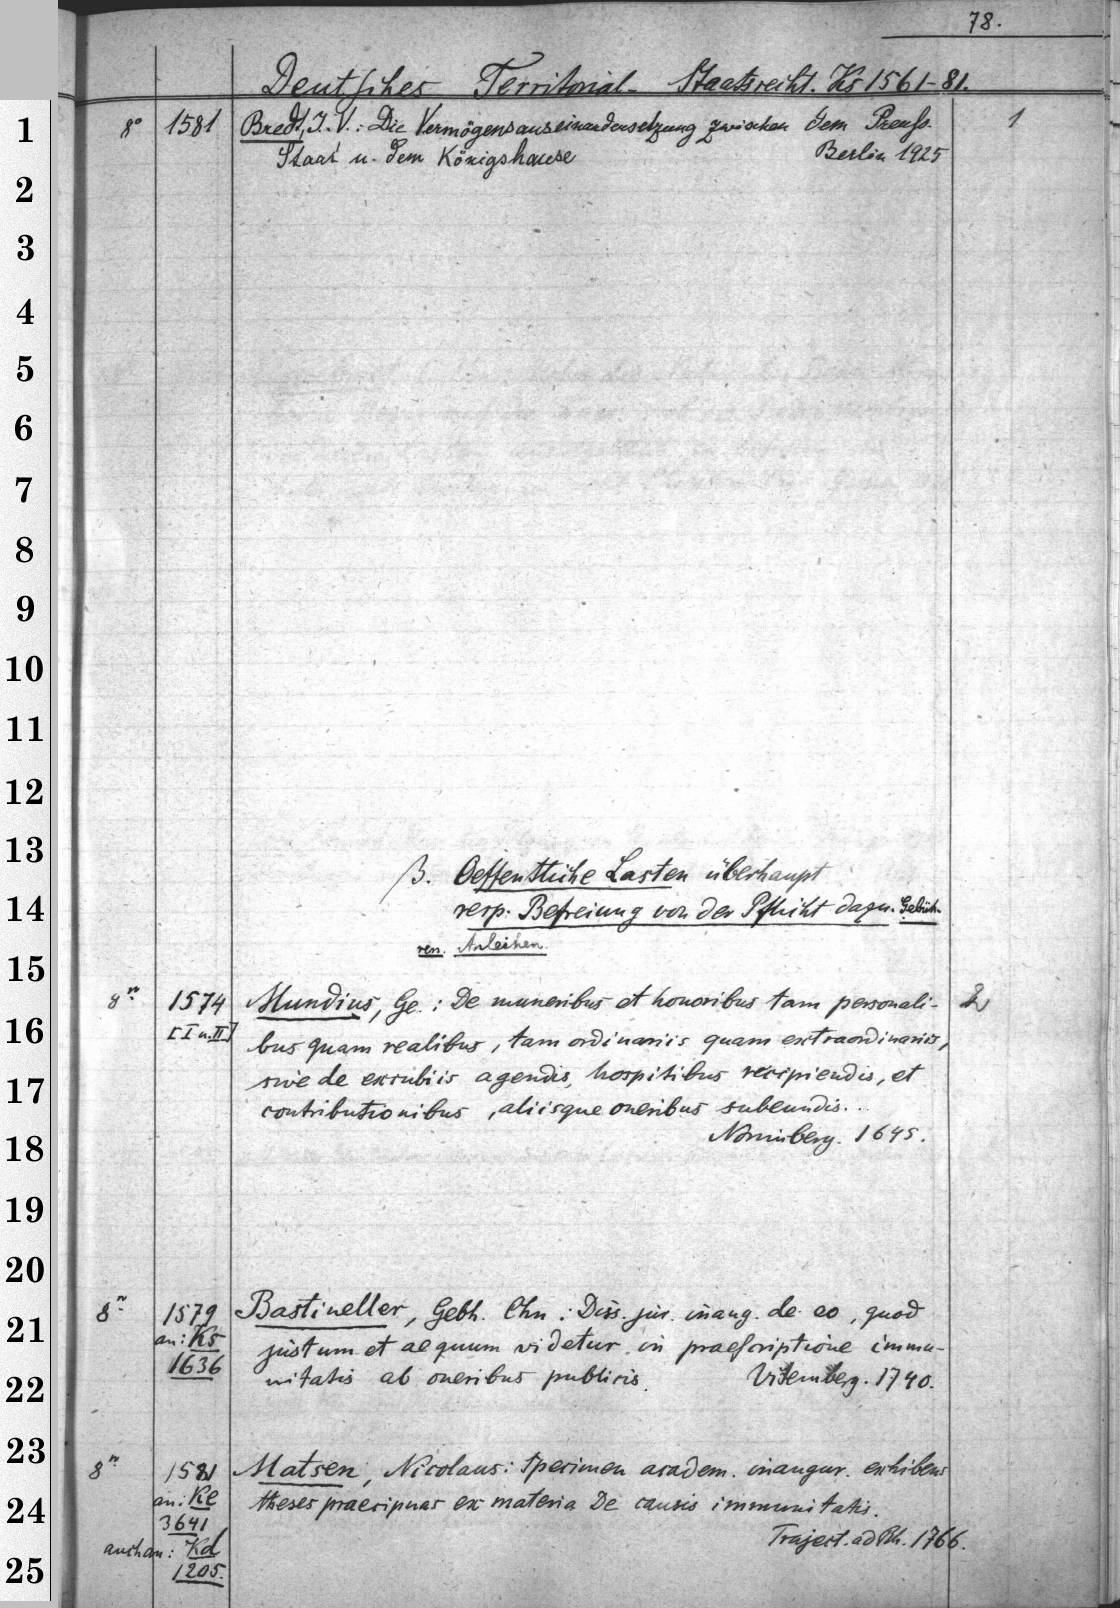 78.
Deutsches Territorial- Staatsrecht. Ks 1561-81.
1
8° 1581 Bredt, J. V.: Die Vermögensauseinandersetzung zwischen dem Preuss. 1
Staat u. dem Königshause Berlin 1925
2
3
4
5
6
7
8
9
10
11
12
13
β. Oeffentliche Lasten überhaupt
14
resp. Befreiung von der Pflicht dazu. Gebüh-
ren. Anleihen.
15
8° 1574 Mundius, Ge.: De muneribus et honoribus tam personali- 2
16
[I u. II] bus quam realibus, tam ordinariis quam extraordinariis,
17
sive de excubiis agendis, hospitibus recipiendis, et
contributionibus, aliisque oneribus subeundis...
18
Norimberg. 1645.
19
20
8° 1579 Bastineller, Gebh. Chn.: Diss. jur. inaug. de eo, quod
21
an: Ks justum et aequum videtur in praescriptione immu-
1636
22
nitatis ab oneribus publicis. Vitemberg. 1740.
23
8° 1581 Matsen, Nicolaus: Specimen academ. inaugur. exhibens
24
an: Ke theses praecipuas ex materia De causis immunitatis.
3641
auch an: Kd Traject. ad Rh. 1766.
25
1205.